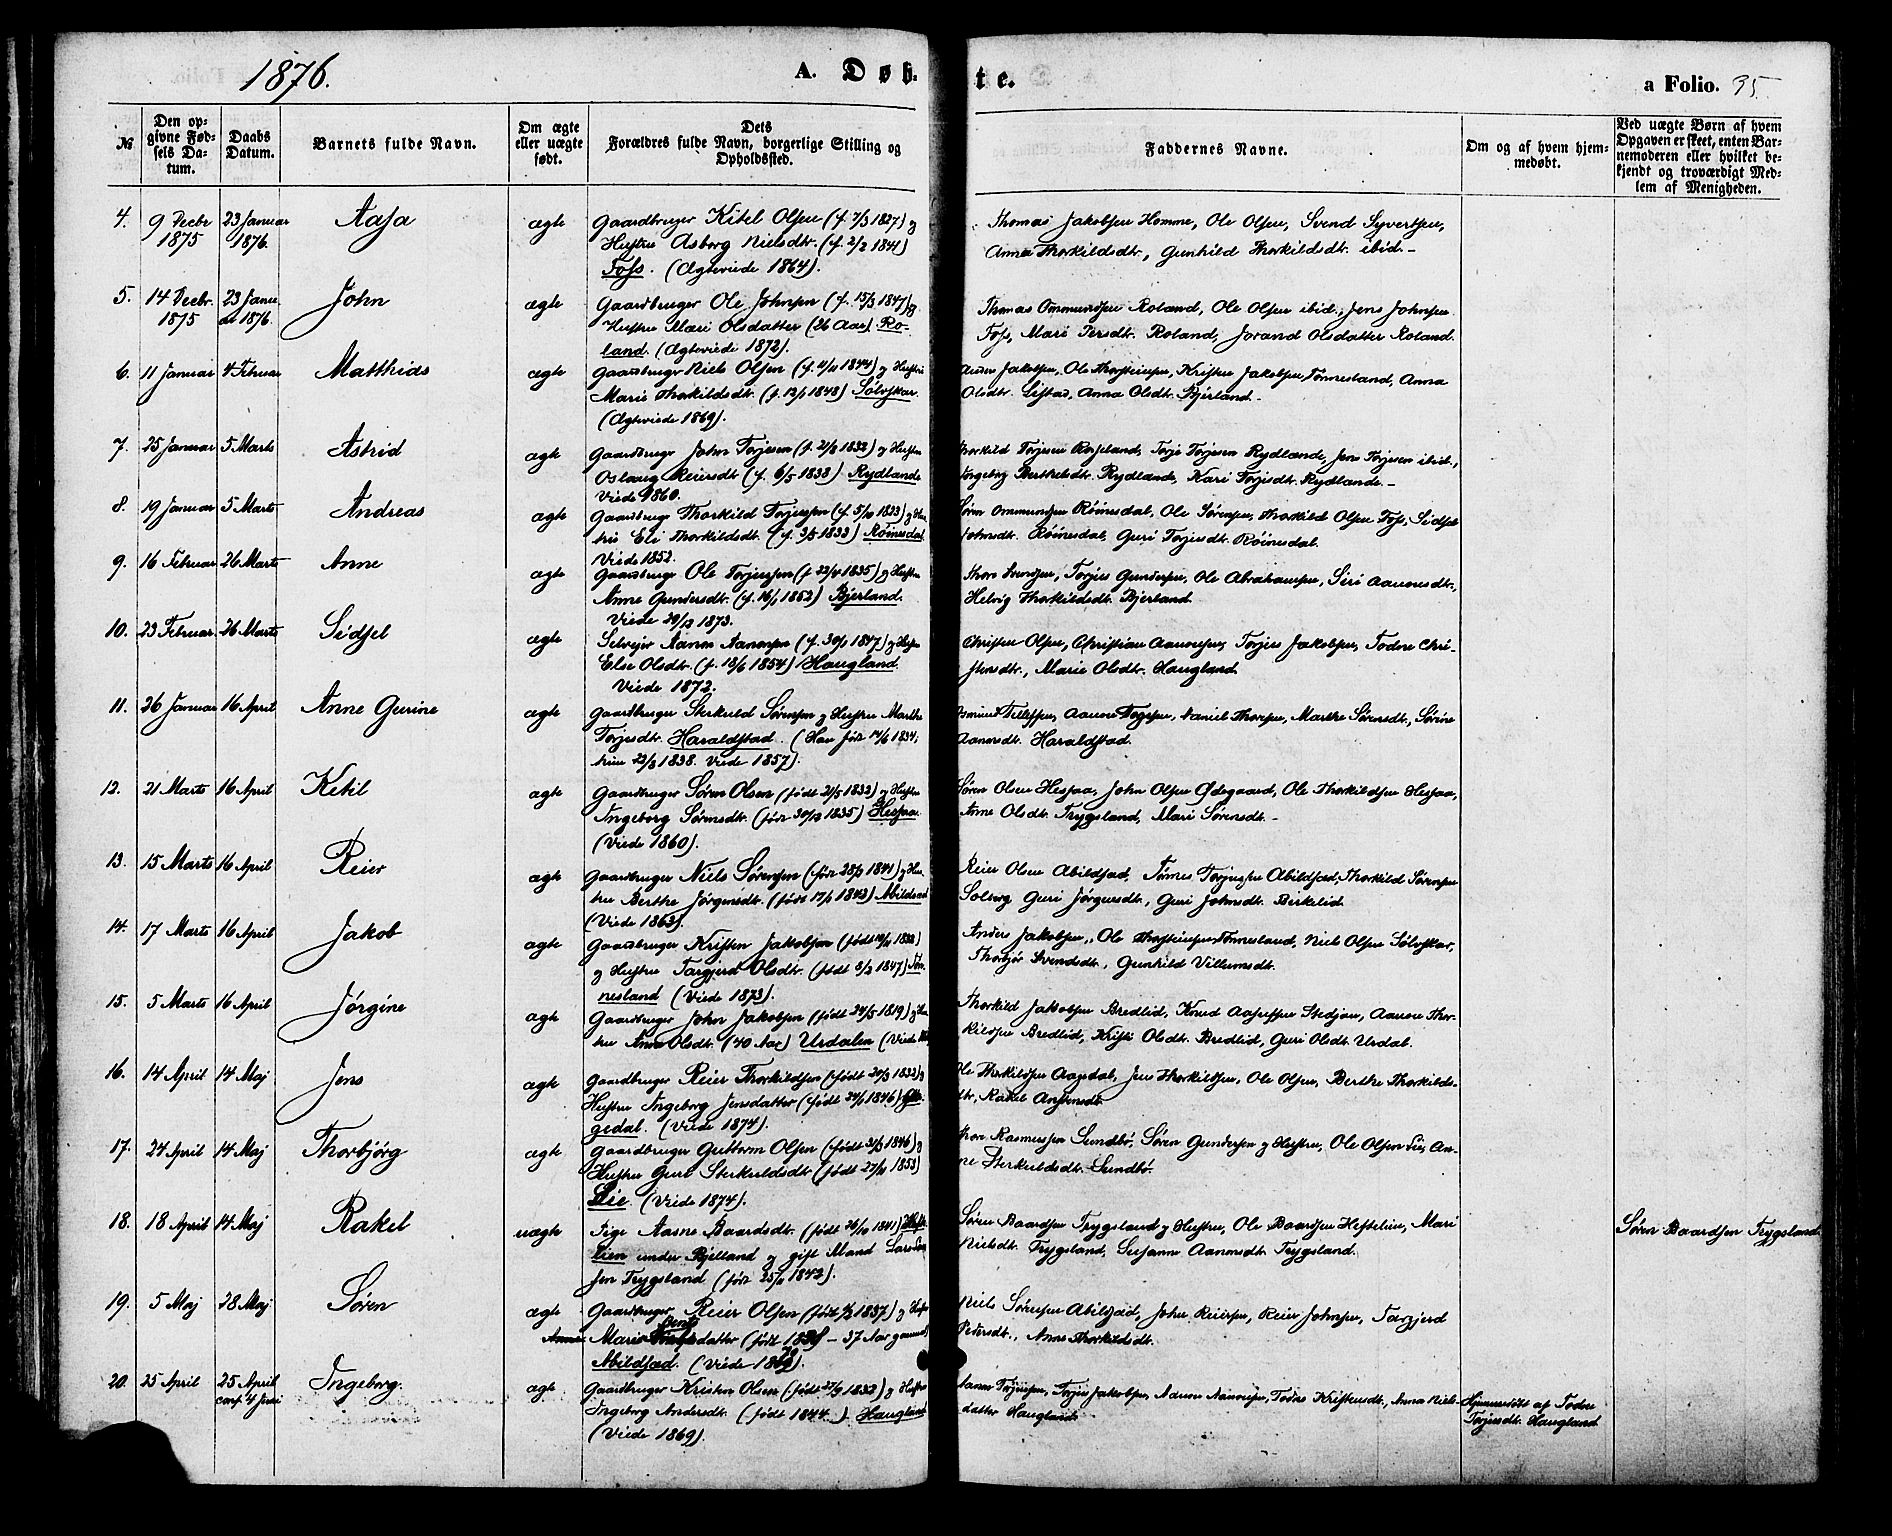 1876.
A. Døb-
te.
a Folio. 35
№
Den op-
givne Fød-
sels Da-
tum.
Daabs
Datum.
Barnets fulde Navn.
Om ægte
eller uægte
født.
Dets
Forældres fulde Navn, borgerlige Stilling og
Opholdssted.
Faddernes Navne.
Om og af hvem hjem-
medøbt.
Ved uægte Børn af hvem
Opgaven er skeet, enten Bar-
nemoderen eller hvilket be-
kjendt og troværdigt Med-
lem af Menigheden.
4. 9 Decbr 1875 23 Januar 1876. Aasa ægte
Gaardbruger Kitel Olsen (f. 7/3 1827) og
Hustru Asborg Nielsdtr. (f. 2/2 1841)
Foss. (Ægteviede 1864).
Thomas Jakobsen Homme, Ole Olsen, Svend Syvertsen,
Anna Thorkildsdtr., Gunhild Thorkildsdtr. ibid.-
5. 14 Decbr. 1875 23 Janu- ar 1876. John ægte
Gaardbruger Ole Johnsen (f. 15/3 1847) og
Hustru Mari Olsdatter (26 Aar) Ro-
land. (Ægteviede 1872).
Thomas Ommundsen Roland, Ole Olsen ibid., Jens Johnsen
Foss, Mari Persdtr. Roland, Jorand Olsdatter Roland.
6. 11 Januar 4 Februar Matthias ægte
Gaardbruger Niels Olsen (f. 1844) og Hustru
Marie Thorkildsdtr. (f. 12/1 1848) Sølvskar.
(Ægteviede 1869).
Jakobsen, Ole Thorsteinsen, Kristen Jakobsen Tønnesland, Anna
Olsdtr. Listad, Anna Olsdtr. Bjerland.-
7. 25 Januar 5 Marts Astrid ægte
Gaardbruger John Torjesen (f. 21/8 1832) og Hustru
Oslaug Reiersdtr (f. 6/5 1838) Rydlande
Viede 1860.
Thorkild Torjesen Rosseland, Torje Torjesen Rydlande, Jens Torjesen ibid.,
Ingeborg Berthelsdtr. Rydlande, Kari Torjesdtr. Rydlande.-
8. 19 Januar 5 Marts Andreas ægte
Gaardbruger Thorkild Torjussen (f. 5/10 1823) og Hus-
tru Eli Thorkildsdtr. (f. 3/5 1833) Røinesdal
Viede 1852.
Søren Ommundsen Røinesdal, Ole Sørensen, Thorkild Olsen Foss, Sidsel
Johnsdtr. Røinesdal, Guri Torjesdtr. Røinesdal.
9. 16 Februar 26 Marts Anne ægte
Gaardbruger Ole Torjussen (f. 22/4 1835) og Hustru
Anne Gundersdtr. (f. 16/1 1852) Bjerland.
Viede 29/12 1873.
Thore Svendsen, Torjus Gundersen, Ole Abrahamsen, Siri Aanonsdtr.,
Helvig Thorkildsdtr. Bjerland.
10. 23 Februar. 26 Marts Sidsel ægte
Selveier Aanon Aanonsen (f. 30/1 1847) og Hustru
Else Olsdtr. (f. 18/6 1854) Haugland.
Viede 1872.
Christen Olsen, Christian Aanonsen, Torjus Jakobsen, Todne Chri-
stensdtr., Marie Olsdtr. Haugland.
11. 26 Januar 16 April Anne Gurine ægte
Gaardbruger Sterkuld Sørensen og Hustru Marthe
Torjesdtr. Haraldstad. (Han født 14/6 1834,
hun 23/8 1838. Viede 1857).
Asmund Tellefsen, Aanon Torjesen, Daniel Thoresen, Marthe Sørensdtr., Sørine
Aanonsdtr. Haraldstad.
12. 21 Marts 16 April Ketil ægte
Gaardbruger Søren Olsen (født 21/5 1832) og Hustru
Ingeborg Sørensdtr. (født 30/12 1835) Hesjaa.
(Viede 1860).
Søren Olsen Hesjaa, John Olsen Ødegaard, Ole Thorkildsen Hesjaa,
Anne Olsdtr. Trygsland, Mari Sørensdtr.-
13. 15 Marts 16 April Reier ægte
Gaardbruger Niels Sørensen (født 28/3 1841) og Hus-
tru Berthe Jørgensdtr. (født 17/1 1842) Abildsnæs
(Viede 1863).
Reier Olsen Abildsæd, Tønnes Torjussen Abildsæd, Thorkild Sørensen
Solberg Guri Jørgensdtr., Guri Johnsdtr. Birkelid.
14. 17 Marts 16 April Jakob ægte
Gaardbruger Kristen Jakobsen (født 1832)
og Hustru Targjerd Olsdtr. (født 3/3 1847) Tøn-
nesland (Viede 1873).
Anders Jakobsen, Ole Thorsteinsen Tønnesland, Niels Olsen Sølvskar,
Thorbjør Svendsdtr., Gunhild Villumsdtr.
15. 5 Marts 16 April Jørgine ægte
Gaardbruger John Jakobsen (født 24/5 1819) og Hus-
tru Anna Olsdtr. (40 Aar) Urdalen (Viede
Thorkild Jakobsen Bredlid, Knud Aasulfsen Stedjan, Aanon Thor-
kildsen Bredlid, Kristi Olsdtr. Bredlid, Guri Olsdtr. Urdal.
16. 14 April 14 Maj Jens ægte
Gaardbruger Reier Thorkildsen (født 20/3 1832) og
Hustru Ingeborg Jensdatter (født 24/1 1846)
gedal. (Viede 1874).
Ole Thorkildsen Aagedal, Jens Thorkildsen, Ole Olsen, Berthe Thorkilds-
dtr, Rakel Anstensdtr.
17. 24 April 14 Maj Thorbjørg ægte
Gaardbruger Guttorm Olsen (født 31/3 1846) og
Hustru Guri Sterkuldsdtr (født 27/11 1853)
Lie. (Viede 1874).
Thore Rasmussen Sundbø, Søren Gundersen og Hustru, Ole Olsen Lie, An-
ne Sterkuldsdtr. Sundbø.
18. 18 April 14 Maj Rakel uægte
Pige Aasne Baardsdtr. (født 26/10 1841) Heste-
lien under Bjelland og gift Mand Lars
sen Trygsland (født 25/11 1842).
Søren Baardsen Trygsland og Hustru, Ole Baardsen Hestelien, Mari
Nielsdtr. Trygsland, Susanne Aanonsdtr. Trygsland.
Søren Baardsen Trygsland
19. 5 Maj 28 Maj Søren ægte
Gaardbruger Reier Olsen (født 1837) og Hustru
Anne Marie Bents datter (født 1838 - 37 Aar gammel)
Abildsæd. (Viede 1870).
Niels Sørensen Abildsæd, John Reiersen, Reier Johnsen, Targjerd
Pedersdtr., Anne Thorkildsdtr.
20. 25 April 25 April conf. 4 Juni Ingeborg. ægte
Gaardbruger Kristen Olsen (født 27/9 1832) og Hustru
Ingeborg Andersdtr. (født 1844.) Haugland
(Viede 1869).
Aanon Torjussen, Torjus Jakobsen, Aanon Aanonsen, Todne Kristensdtr., Anna Niels-
datter Haugland
Hjemmedøbt af Todne
Torjusdtr. Haugland